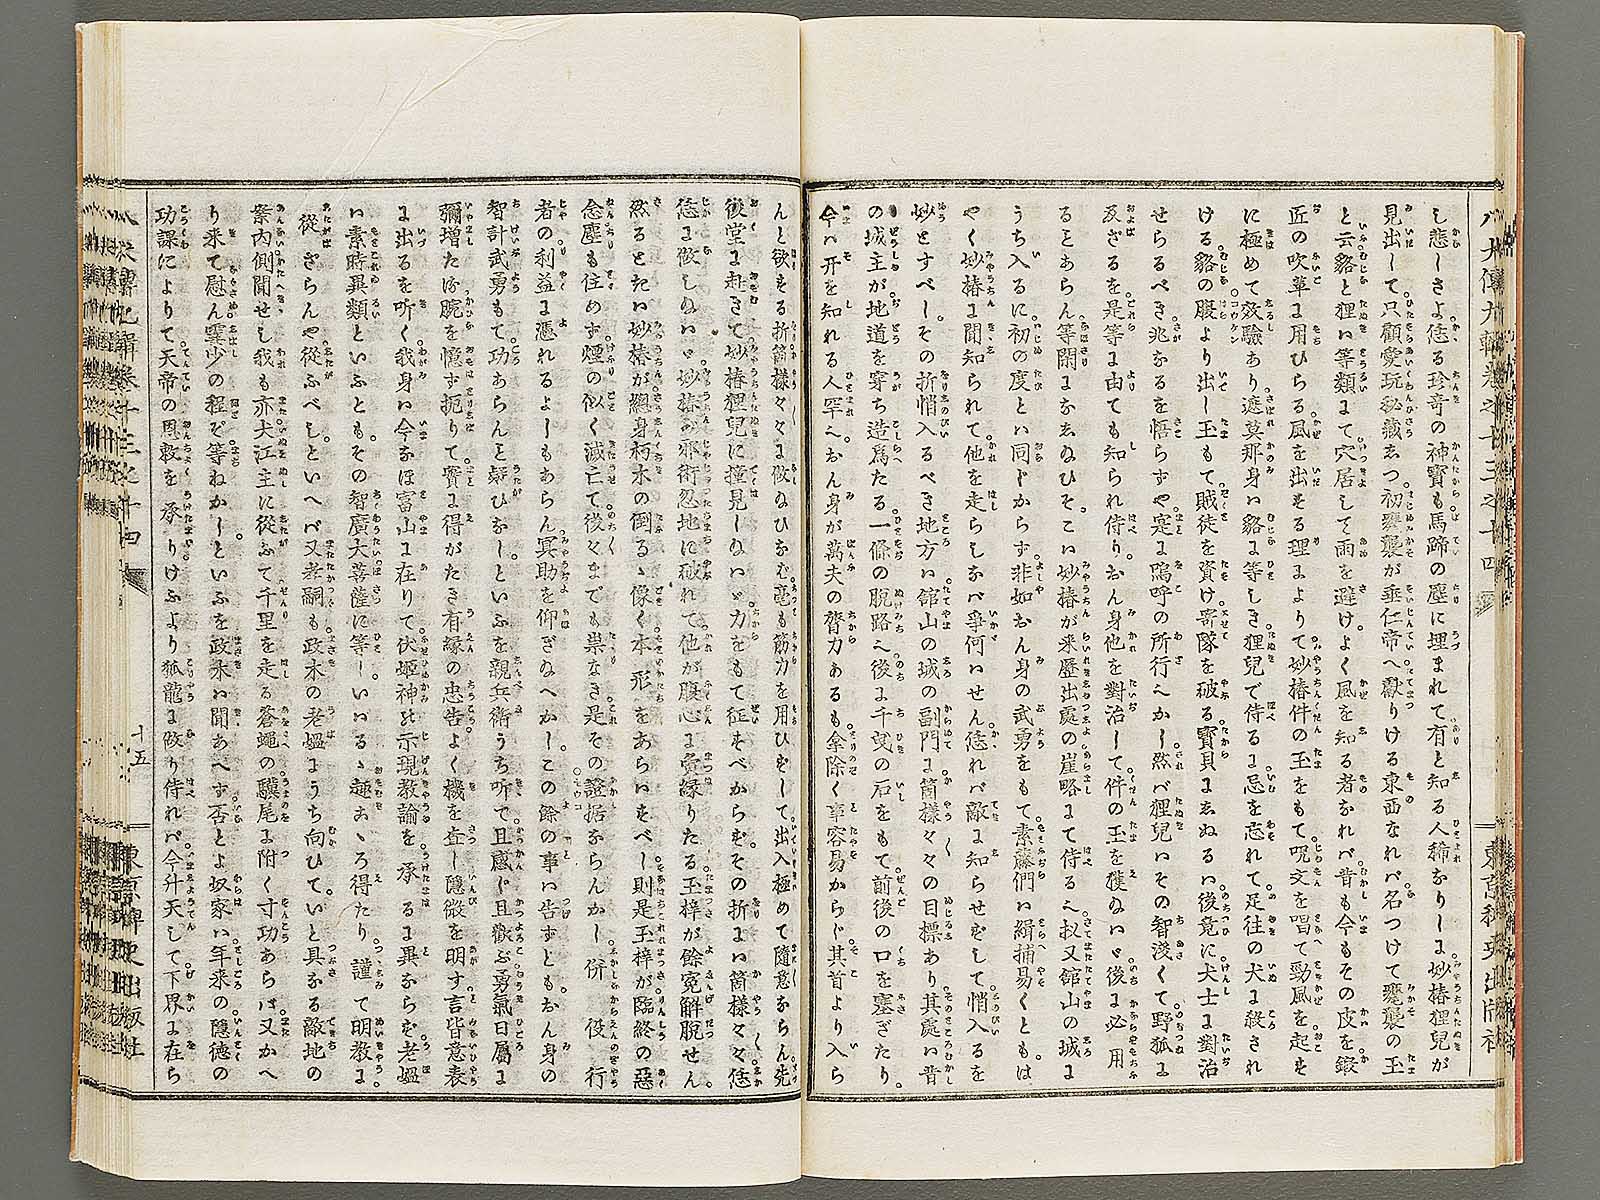 し悲しきよ恁る珍奇の神寶も馬蹄の塵に埋まれて有と知る人稀なりしに妙椿狸兒が
見出して只顧愛玩秘藏しつ初甕襲が垂仁帝へ獻りける東西なれバ名つけて甕襲の玉
と云貉と狸ハ等類にて穴居して雨を避けよく風を知る者なれバ昔も今もその皮を鍛
匠の吹革に用ひらる風を出せる理によりて妙椿件の玉をもて呪文を唱て勁風を起せ
に極めて效驗あり遮莫那身ハ貉に等しき狸兒で侍るに忌を忘れて足往の犬に殺され
ける貉の腹より出し玉もて賊徒を資け寄隊を破る寶貝にしぬるハ後竟に犬士に對治
せらるべき兆なるを悟らずや寔に嗚呼の所行へかし然バ狸兒ハその智淺くて野狐に
及ざるを是等に由ても知られ侍り。おん身他を對治して件の玉を獲ぬハヾ後に必用
ることあらん等閑になゐぬひそ。こハ妙椿が来歴出處の崖略にて侍る又館山の城に
うち入るに初の度とハ同じからず非如おん身の武勇をもて素藤們ハ緝捕易くとも。は
やく妙椿に聞知られて他を走らしなバ爭何ハせん恁れバ敵に知らせずして悄入るを
妙とすべし。その折悄入るべき地方ハ舘山の城の副門に箇樣々々の目標あり其處ハ昔
の城主が地道を穿ち造爲たる一條の脱路へ後に千曳の石をもて前後の口を塞ぎたり。
今ハ开を知れる人罕へおん身が萬夫の膂力あるも拿除く事容易からじ其首より入ら
んと欲する折箇樣々々に做ぬひなむ毫も筋力を用ひずして出入極めて隨意ならん先
後堂に赴きて妙椿狸兒に撞見しぬハヾ力をもて征すべからずその折にハ箇樣々々恁
恁に做しぬハヾ妙椿が邪術忽地に破れて他が腹心に夤縁りたる玉梓が餘寃解脱せん。
然るときハ妙椿が總身朽木の倒るヽ像く本形をあらハすべし則是玉梓が臨終の惡
念塵も住めず煙の似く滅亡て後々までも祟なき是その證据ならんかし併役行
者の利益に憑れるよしもあらん冥助を仰ぎぬへかしこの餘の事ハ告ずともおん身の
智計武勇もて功あらんと疑ひなし。といふを親兵衞うち听て且感じ且歡ぶ勇氣日屬に
彌增たる腕を憶ず扼りて實に得がたき有縁の忠告よく機を査し隱微を明す言皆意表
に出るを听く我身ハ今なほ富山に在りて伏姫神の示現教諭を承るに異ならず老媼
ハ素時異類といふとも。その智廣大菩薩に等しいハるヽ趣こヽろ得たり謹て明教に
從ざらんや從ふべし。といへバ又孝嗣も政木の老媼にうち向ひていと具なる敵地の
案内側聞せし我も亦犬江主に從ふて千里を走る蒼蠅の驥尾に附く寸功あらば又かへ
り来て慰ん霎少の程ぞ等ねかし。といふを政木ハ聞あへず否とよ奴家ハ年来の隱德の
功課によりて天帝の恩敕を承りけふより狐龍に做り侍れバ今升天して下界に在ら
十五